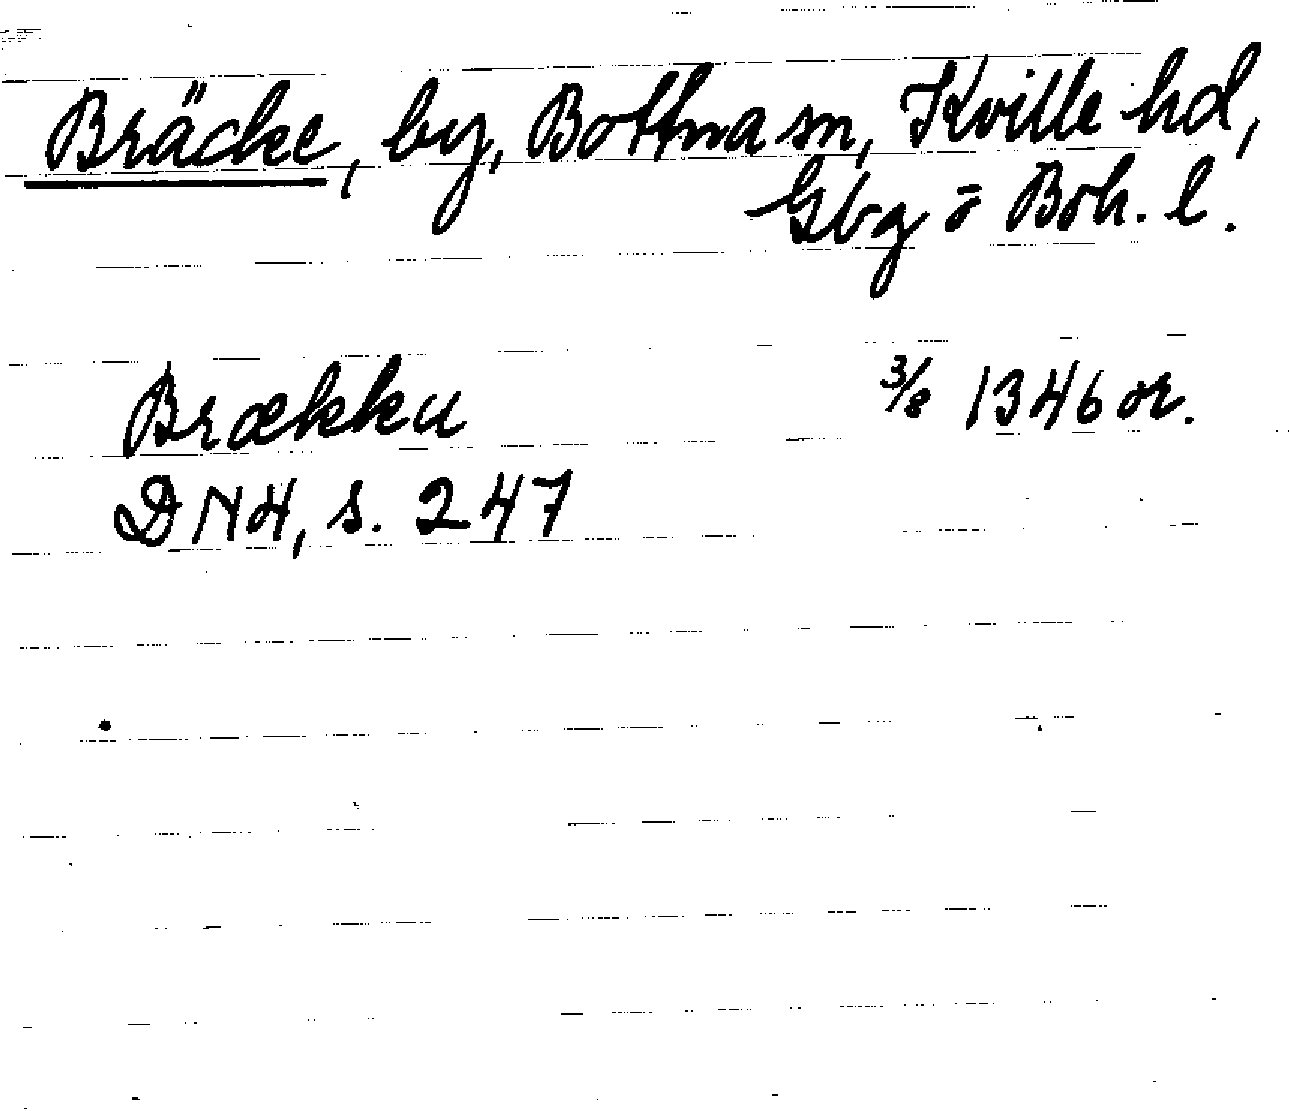 Bräcke, by, Bottna sn, Kville hd,
Gbg o Boh. l.
Brækku 3/8 1346 or.
DN 4, s. 247